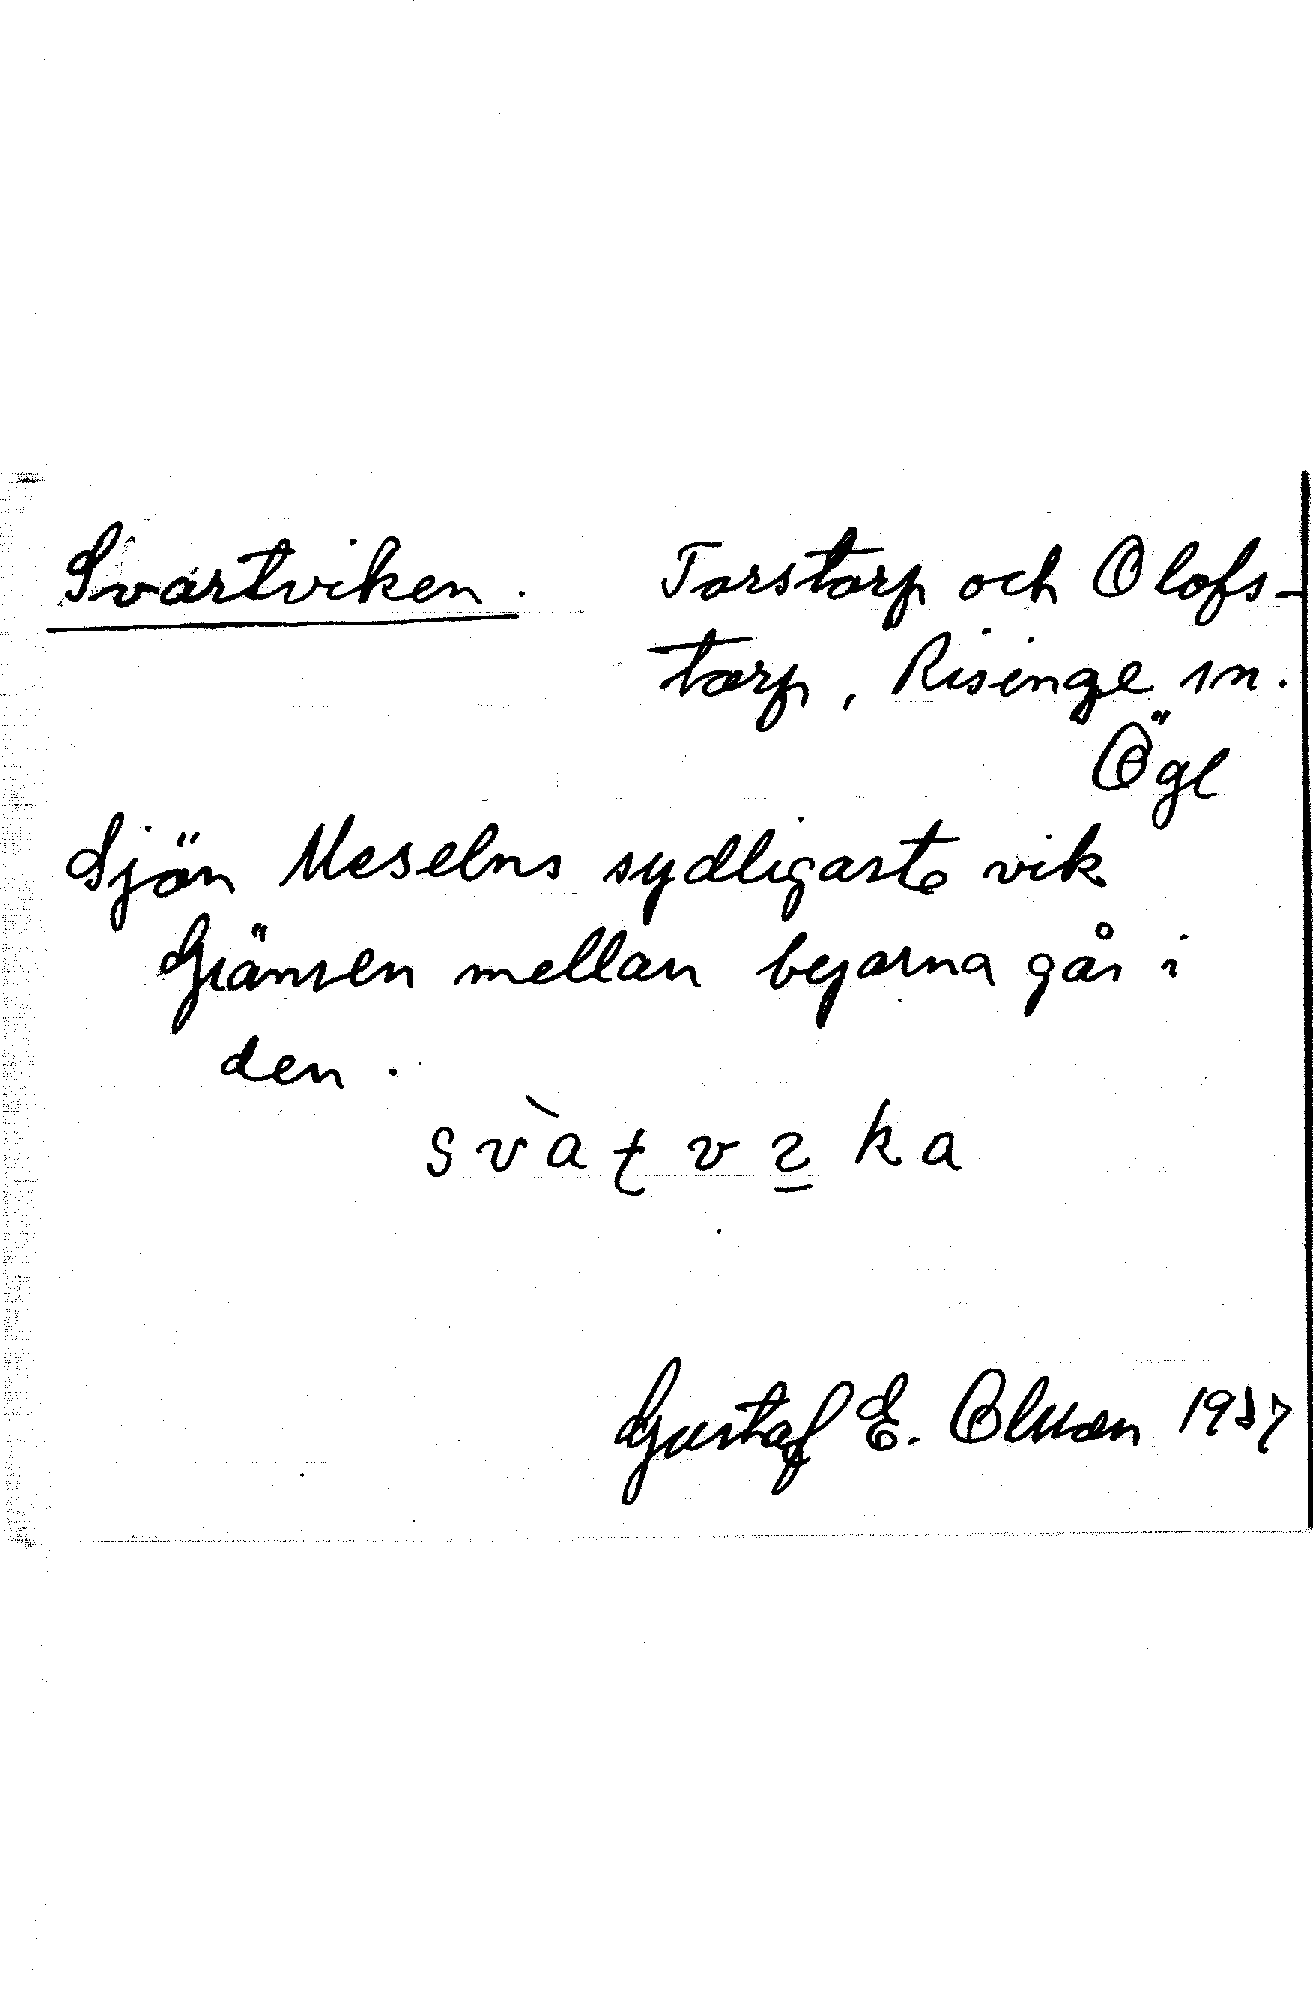 Svartviken. Torstorp och Olofs-
torp, Risinge sn.
Ögl
Sjön Meselns sydligaste vik
Gränsen mellan byarna går i
den.
svàtvıka
Gustaf E. Olsson 1937